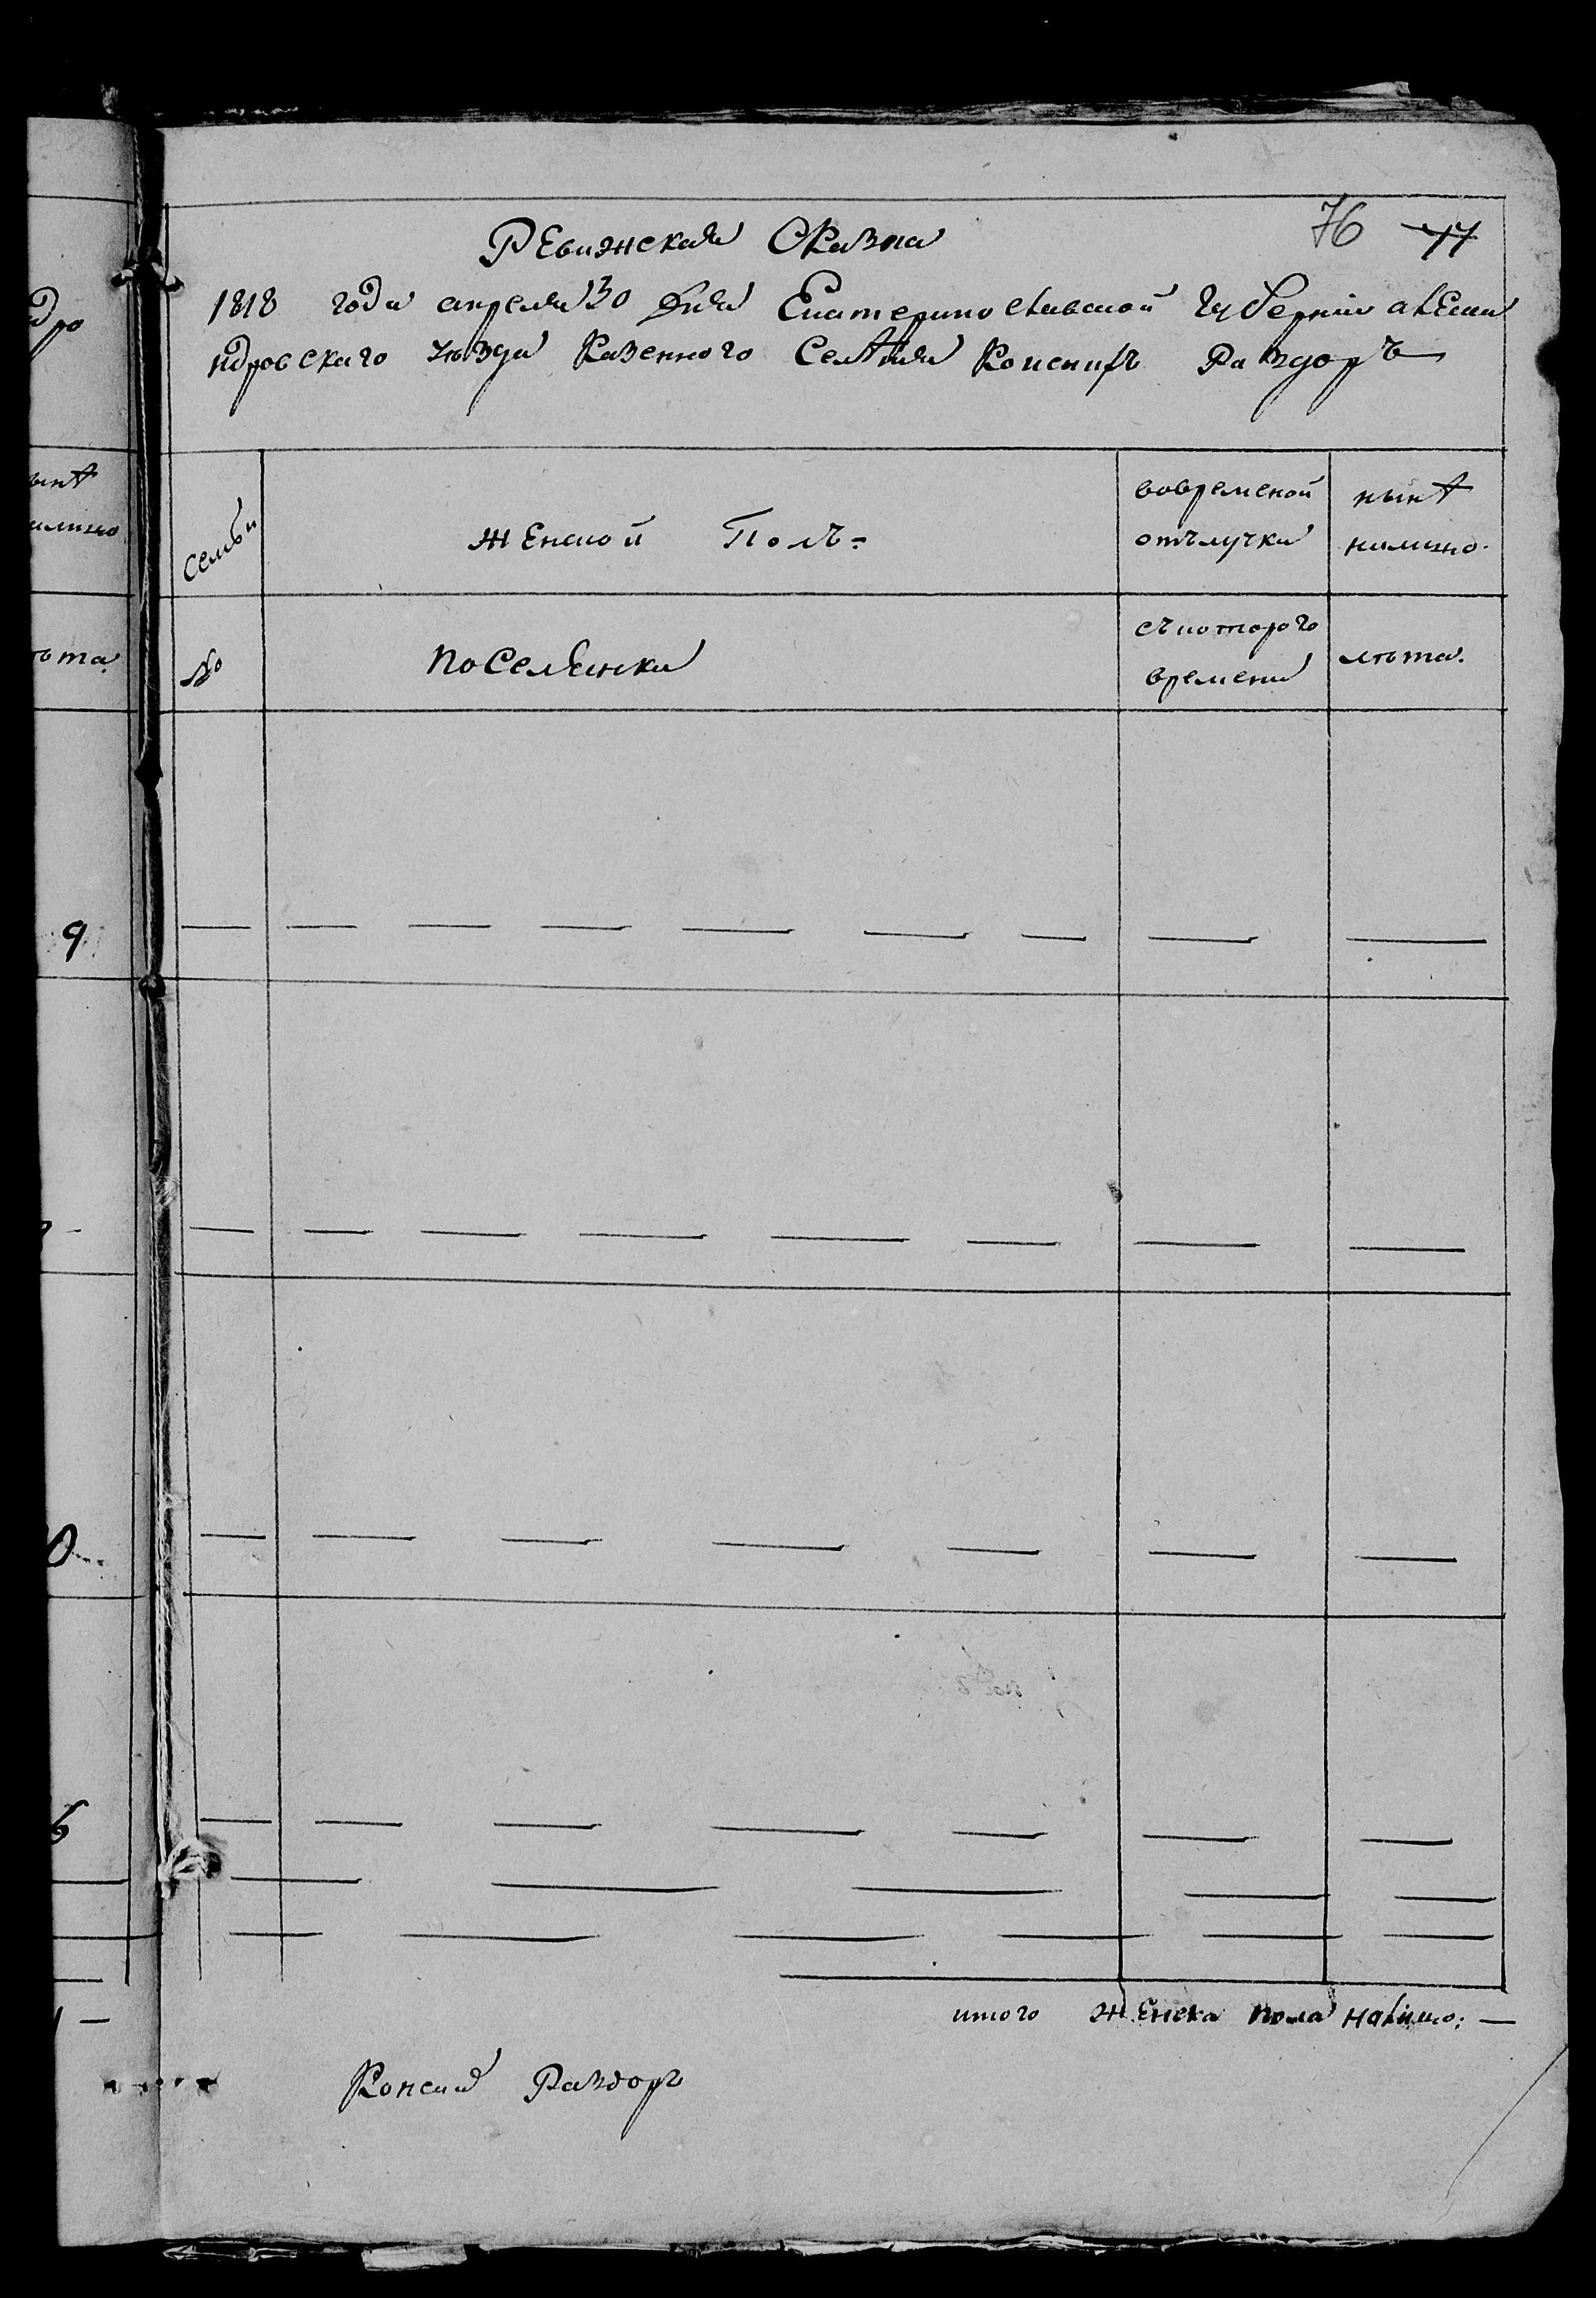 76 77
Ревижская Сказка
1818 года апреля 30 дня Екатеринославской Губернiи алекса
ндровского уѣзда Казенного Селѣния Конскихъ Раздоръ
Семьи
женской Полъ
вовременой
отълучки
нынѣ
налицо
№
поселянки
съкоторого
времени
лѣта.
дро
нынѣ
алицо
ѣта.
9
6
итого женска пола налицо: —
Конский Раздоръ